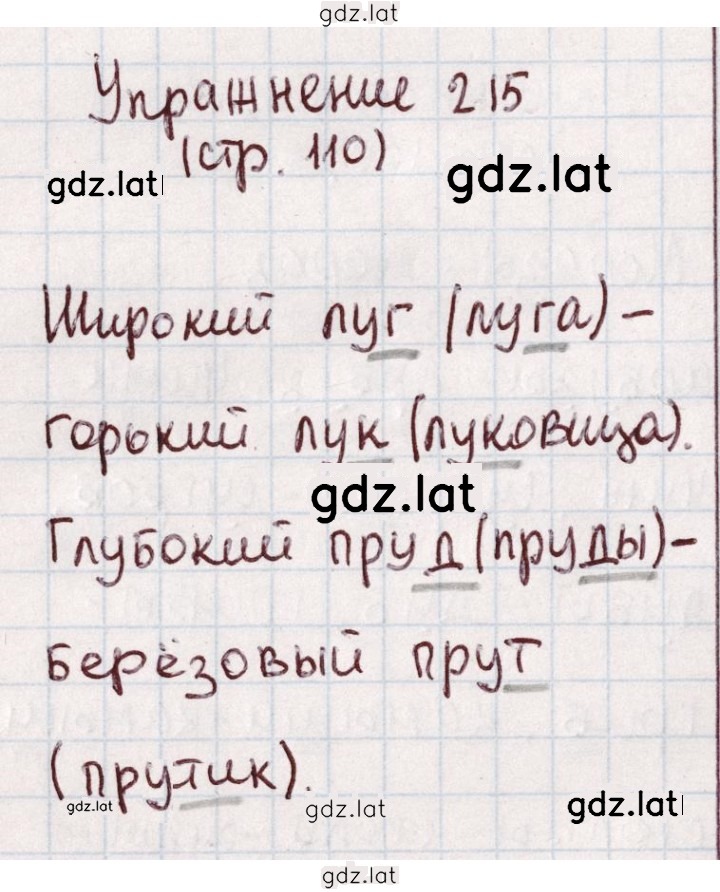 gdz.lat
Упражнение 215
(стр. 110)
gdz.lat
gdz.lat
Широкий луг (луга) –
горький лук (луковица).
gdz.lat
Глубокий пруд (пруды) –
берёзовый прут
(прутик).
gdz.lat
gdz.lat
gdz.lat
gdz.lat